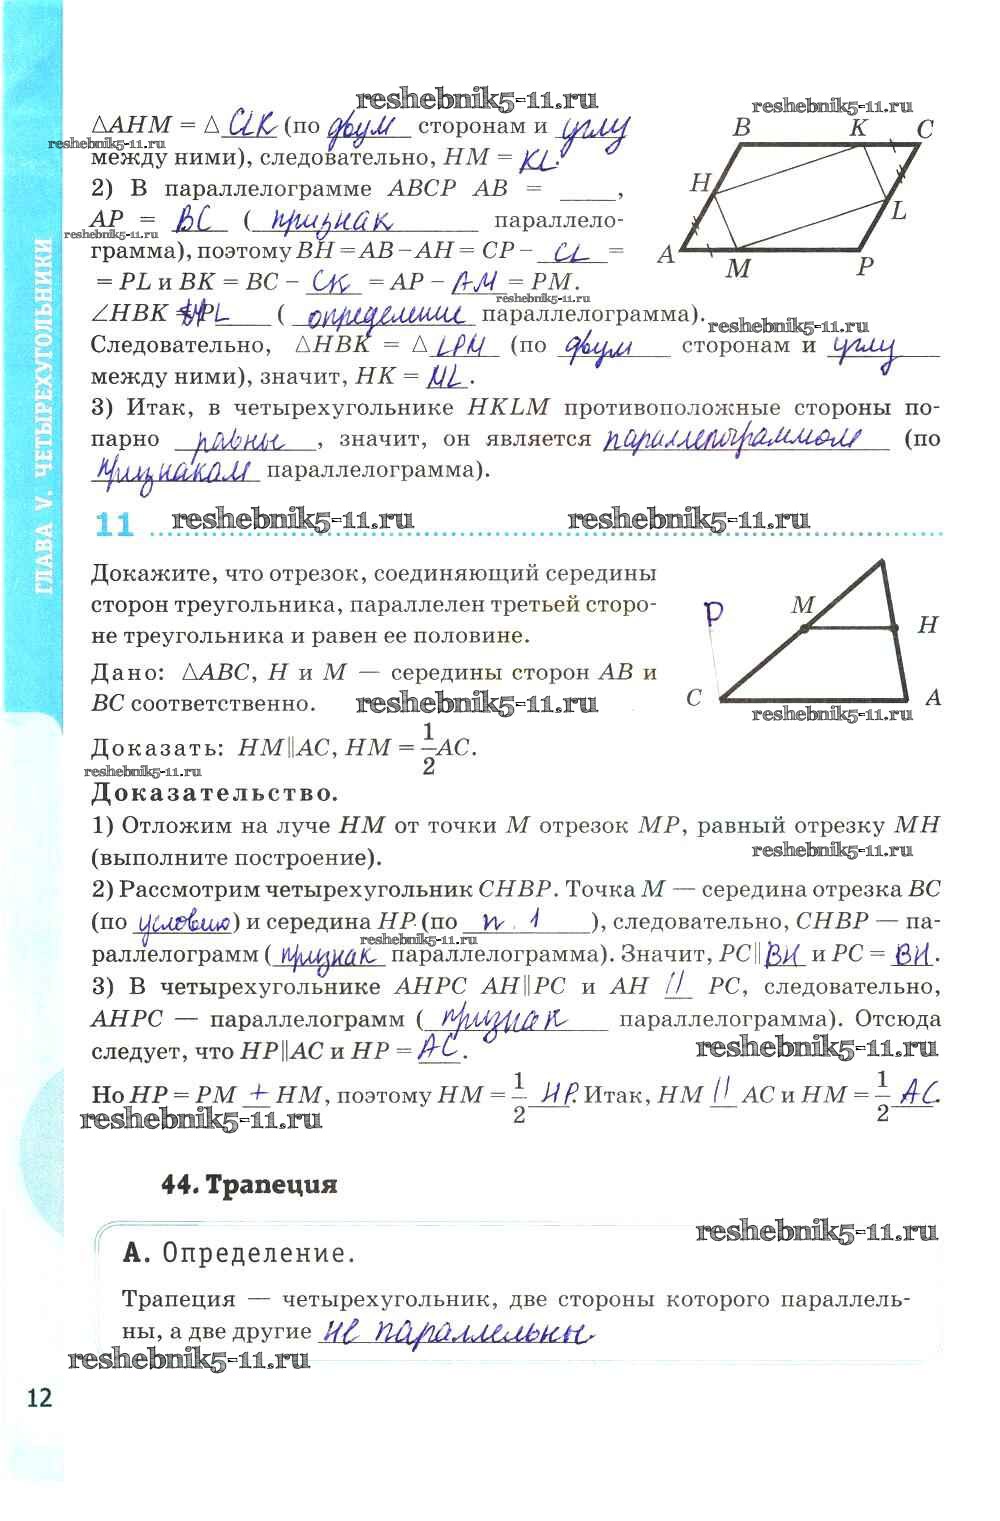 reshebnik5-11.ru
reshebnik5-11.ru
△AHM = △ CLK (по двум сторонам и углу
reshebnik5-11.ru
между ними), следовательно, HM = KL.
2) В параллелограмме ABCP AB = ____,
AP = BC (признак параллело-
reshebnik5-11.ru
грамма), поэтому BH = AB – AH = CP – CL =
= PL и BK = BC – CK = AP – AM = PM.
reshebnik5-11.ru
∠HBK = PL (определение параллелограмма).
reshebnik5-11.ru
Следовательно, △HBK = △ LPM (по двум сторонам и углу
между ними), значит, HK = ML.
3) Итак, в четырехугольнике HKLM противоположные стороны по-
парно равны, значит, он является параллелограммом (по
признакам параллелограмма).
B K C
H
L
A M P
11
reshebnik5-11.ru reshebnik5-11.ru
Докажите, что отрезок, соединяющий середины
сторон треугольника, параллелен третьей сторо-
не треугольника и равен ее половине.
Дано: △ABC, H и M — середины сторон AB и
BC соответственно. reshebnik5-11.ru
P M H
C A
reshebnik5-11.ru
Доказать: HM∥AC, HM = 1/2 AC.
reshebnik5-11.ru
Доказательство.
1) Отложим на луче HM от точки M отрезок MP, равный отрезку MH
(выполните построение). reshebnik5-11.ru
2) Рассмотрим четырехугольник CHBP. Точка M — середина отрезка BC
(по условию) и середина HP (по п. 1), следовательно, CHBP — па-
reshebnik5-11.ru
раллелограмм (признак параллелограмма). Значит, PC∥BH и PC = BH.
3) В четырехугольнике AHPC AH∥PC и AH || PC, следовательно,
AHPC — параллелограмм (признак параллелограмма). Отсюда
следует, что HP∥AC и HP = AC. reshebnik5-11.ru
Но HP = PM + HM, поэтому HM = 1/2 HP. Итак, HM || AC и HM = 1/2 AC.
reshebnik5-11.ru
44. Трапеция
reshebnik5-11.ru
А. Определение.
Трапеция — четырехугольник, две стороны которого параллель-
ны, а две другие не параллельны.
reshebnik5-11.ru
12
ГЛАВА V. ЧЕТЫРЕХУГОЛЬНИКИ